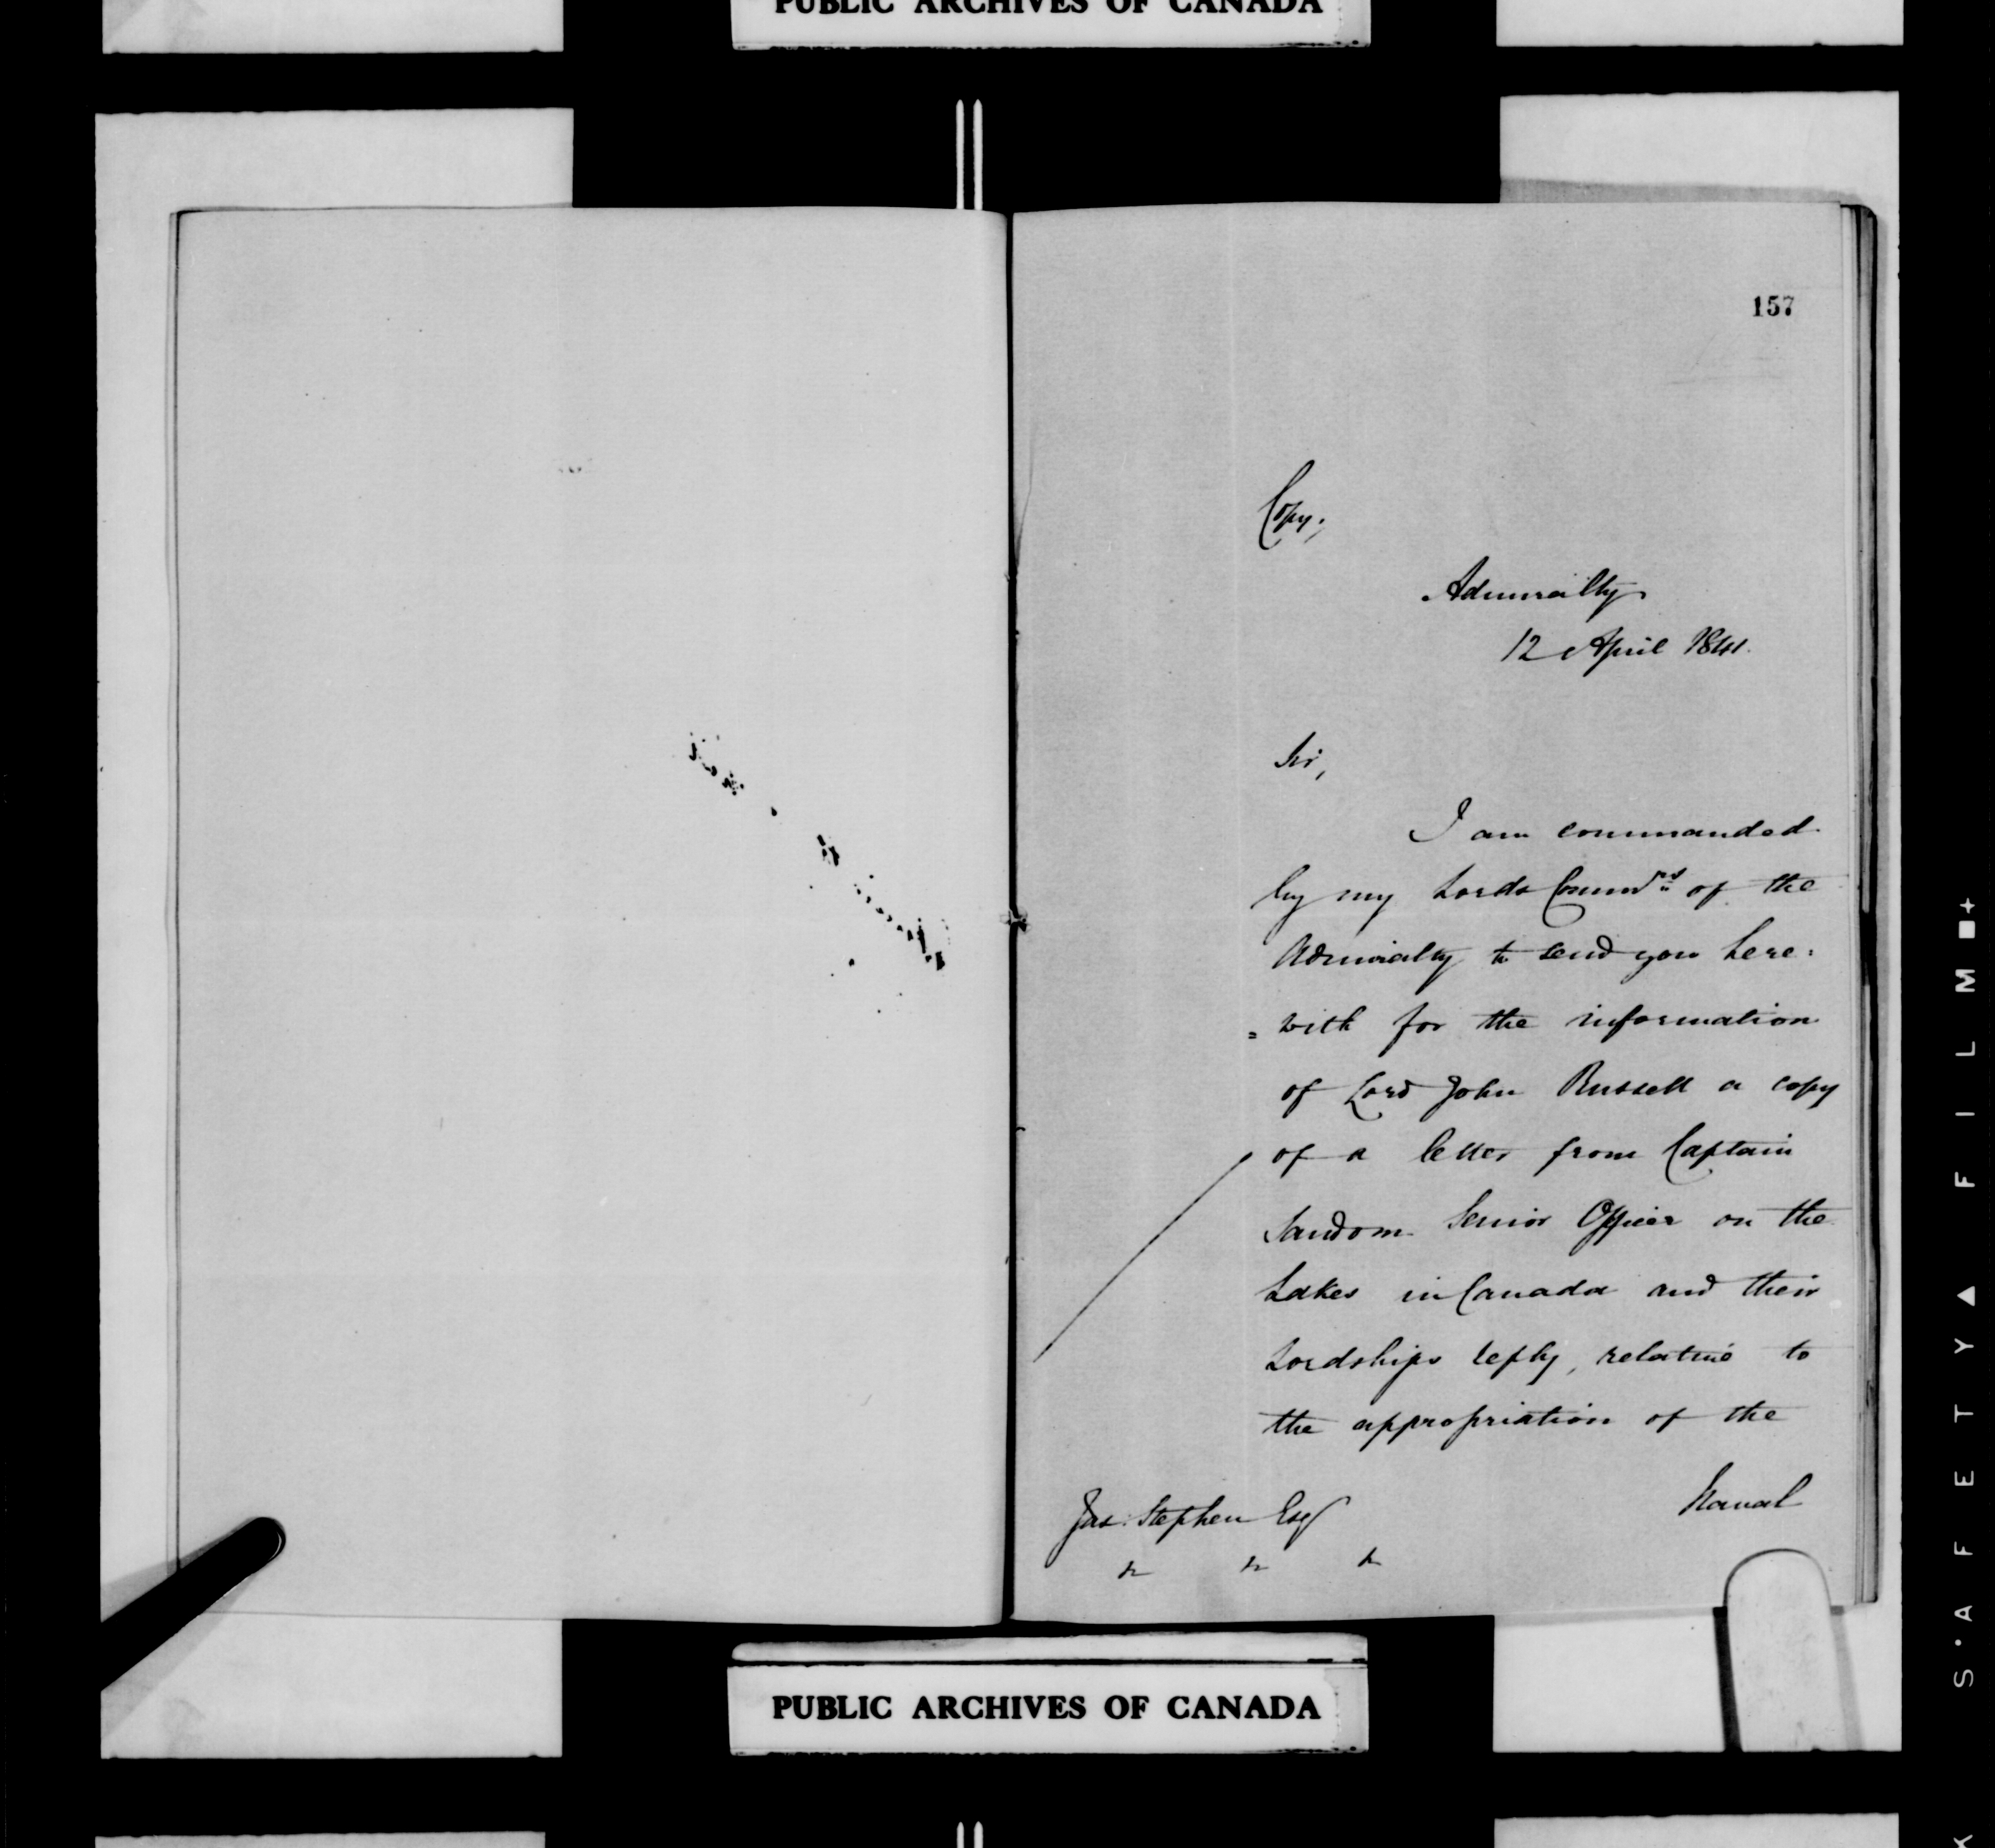 PUBLIC ARCHIVES OF CANADA
157
Copy;
Admiralty
12 April 1841.
Sir,
I am commanded
by my Lords Commrs of the
Admiralty to send you here=
=with for the information
of Lord John Russell a copy
of a letter from Captain
Sandom Senior Officer on the
Lakes in Canada and their
Lordships reply, relative to
the appropriation of the
Naval
Jas. Stephen Esq
PUBLIC ARCHIVES OF CANADA
SAFETY ▲ FILM ■+